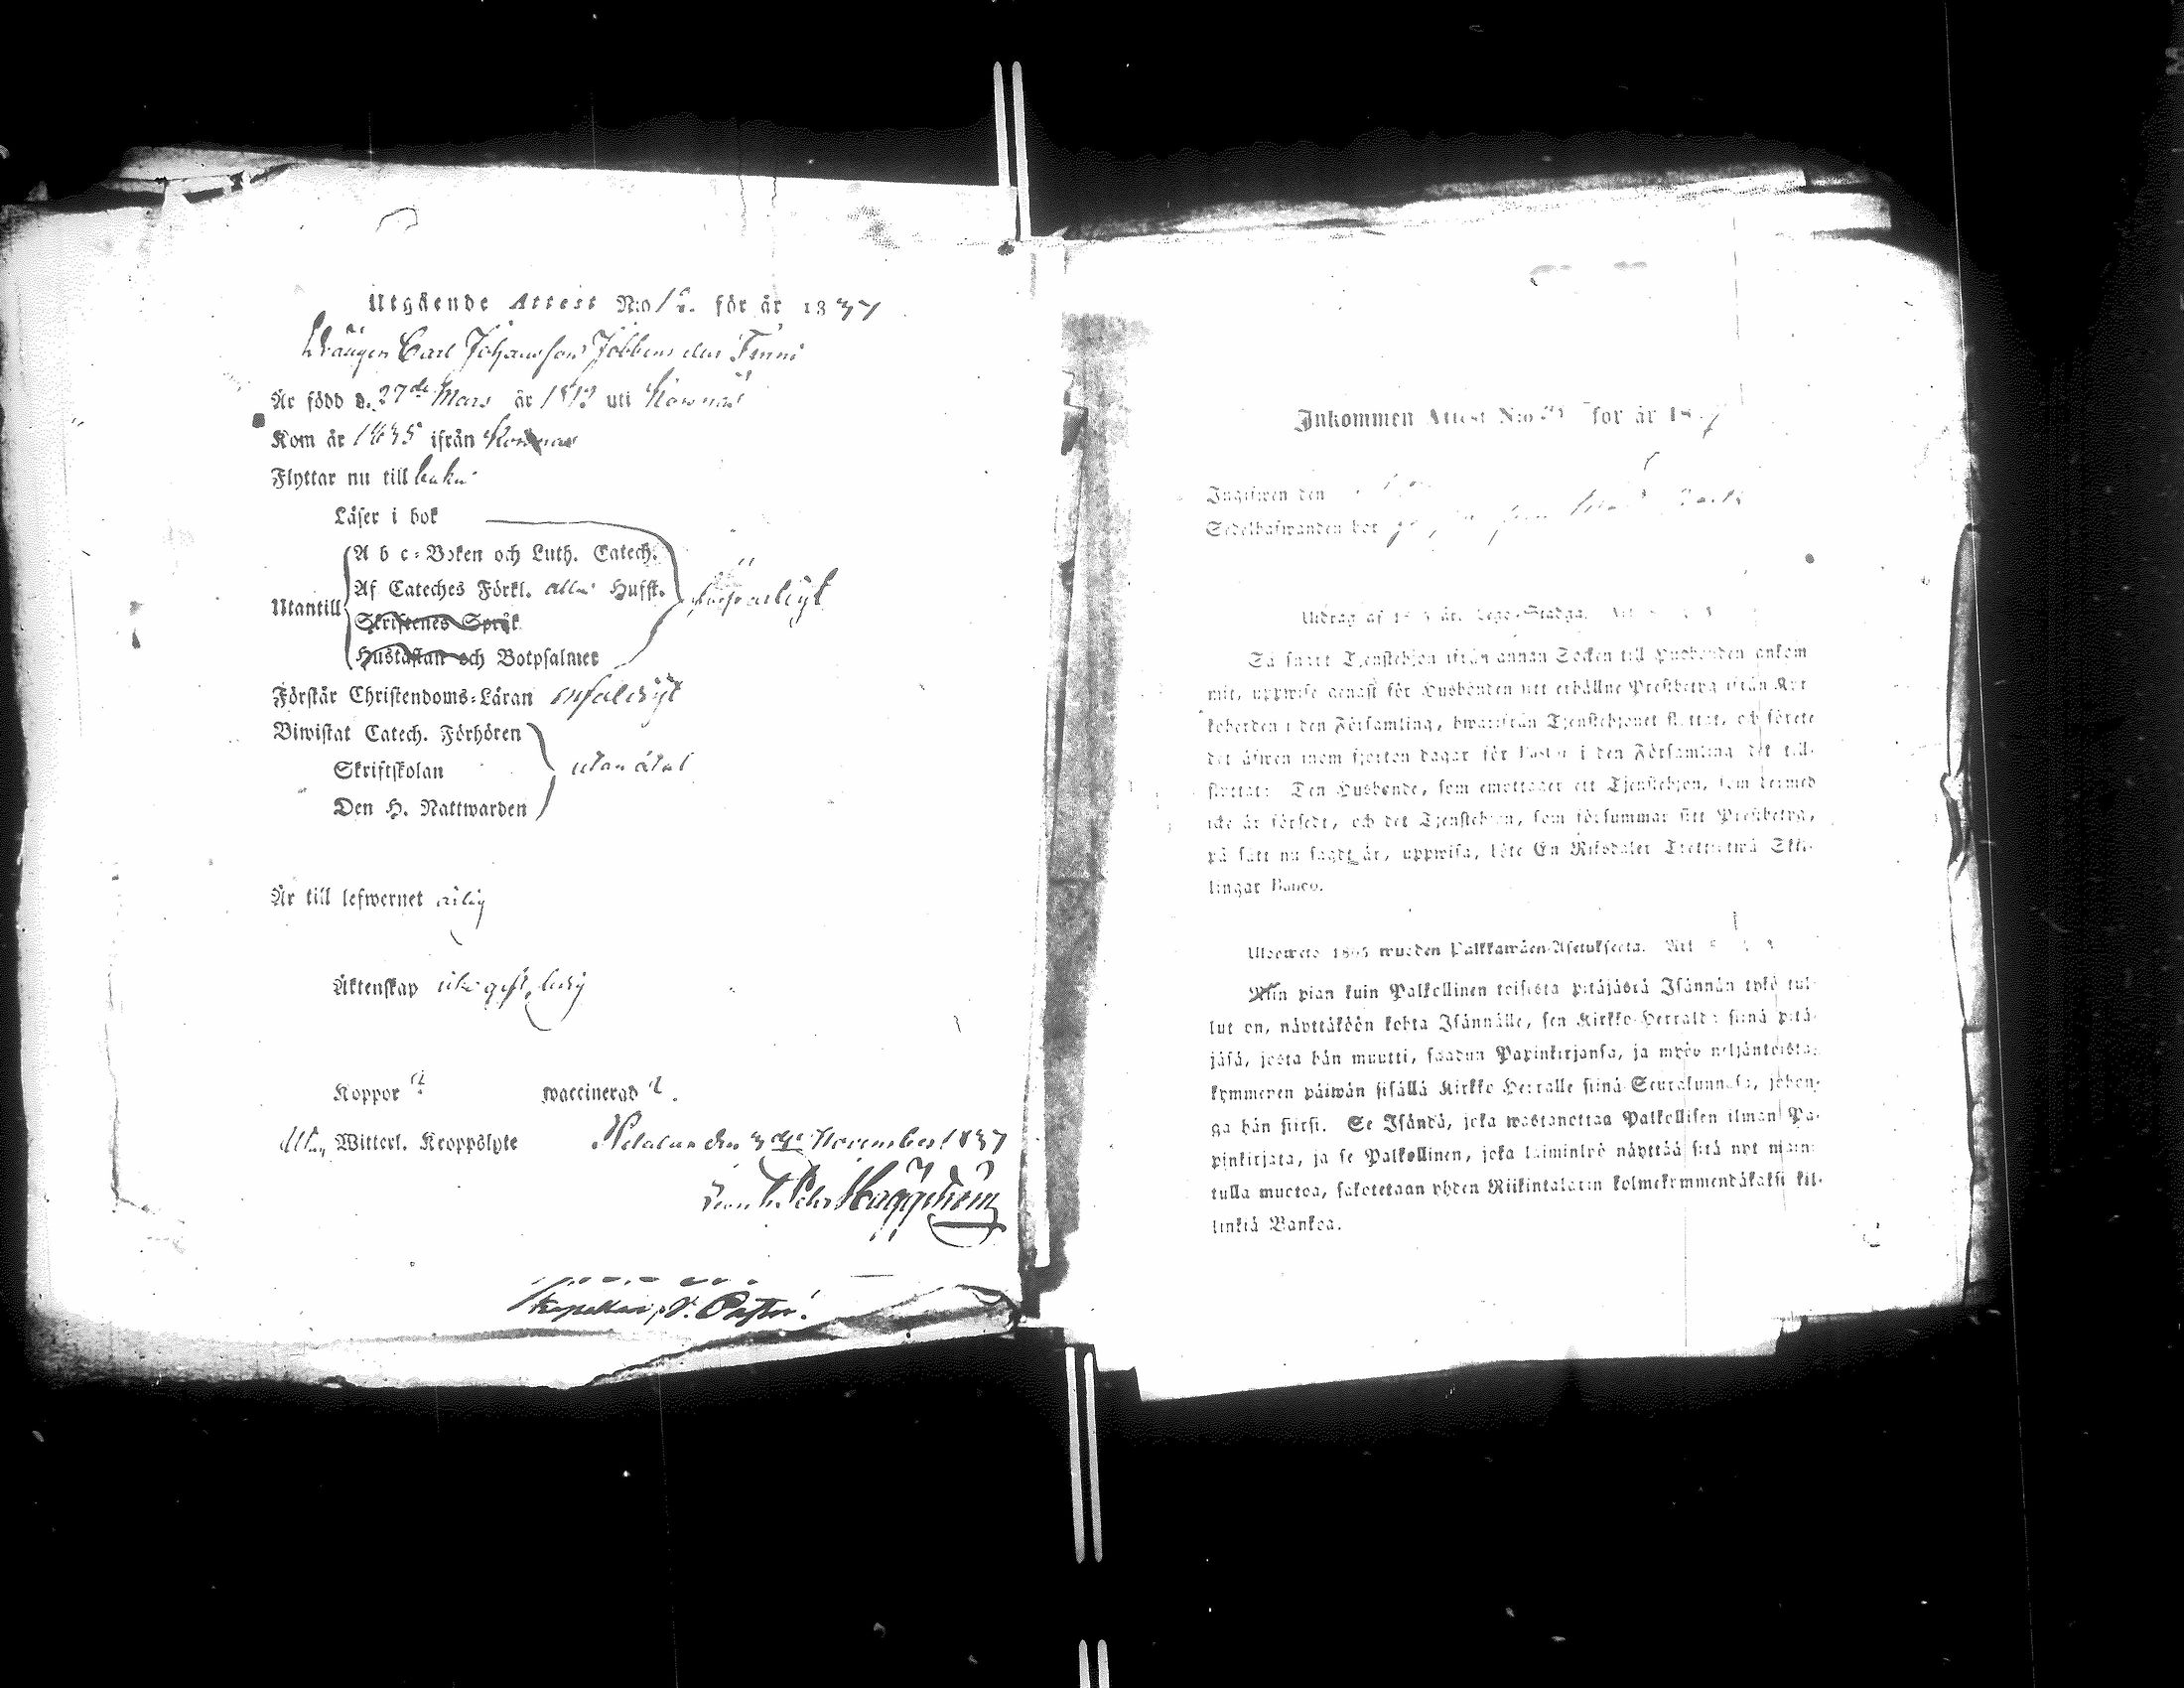 Utgående Attest N:o för år 1837
Drängen Carl Johansson Jöbbens eller Finni
Är född d. 27de Mars år 1812 uti Korsnäs
Kom år 1835 ifrån Korsnäs
Flyttar nu till baka
Läser i bok
A b c-Boken och Luth. Catech.
Af Cateches Förkl. alla Hufst.
Utantill försvarligt
Skriftenes Språk
Hustaflan och Botpsalmer
Förstår Christendoms-Läran enfaldigt
Biwistat Catech. Förhören
Skriftskolan utan åtal
Den H. Nattwarden
Är till lefwernet ärlig
Äktenskap icke gift, ledig
Koppor waccinerad
Utan Witterl. Kroppslyte den 3dje November 1837
Häggström
Kapellan, V. Pastor.
Inkommen Attest N:o för år 18
Ingifwen den
Sedelhafwanden bor
Utdrag af år. Lego-Stadga.
Så snart Tjenstehjon ifrån annan Socken till Husbonden ankom-
mit, uppwise genast för Husbonden sitt erhållne Prestbetyg ifrån Kyr-
koherden i den Församling, hwarifrån Tjenstehjonet flyttat, och förete
det äfwen inom fjorton dagar för Pastor i den Församling dit till-
flyttat: Den Husbonde, som emottager ett Tjenstehjon, som dermed
icke är försedt, och det Tjenstehjon, som försummar sitt Prestbetyg,
på sätt nu sagdt är, uppwisa, böte En Riksdaler Trettiotwå Skil-
lingar Banco.
Ulosweto 1805 wuoden Palkkawäen-Asetuksesta. Art.
Niin pian kuin Palkollinen toisesta pitäjästä Isännän tykö tul-
lut on, näyttäköön kohta Isännälle, sen Kirkko-Herralda siinä pitä-
jäsä, josta hän muutti, saadun Papinkirjansa, ja myös neljäntoista-
kymmenen päiwän sisällä Kirkko Herralle siinä Seurakunnasa, johon-
ga hän siirsi. Se Isändä, joka wastanottaa Palkollisen ilman Pa-
pinkirjata, ja se Palkollinen, joka laiminlyö näyttää sitä nyt main-
tulla muotoa, sakotetaan yhden Riikintalarin kolmekymmendäkaksi kil-
linkiä Bankoa.